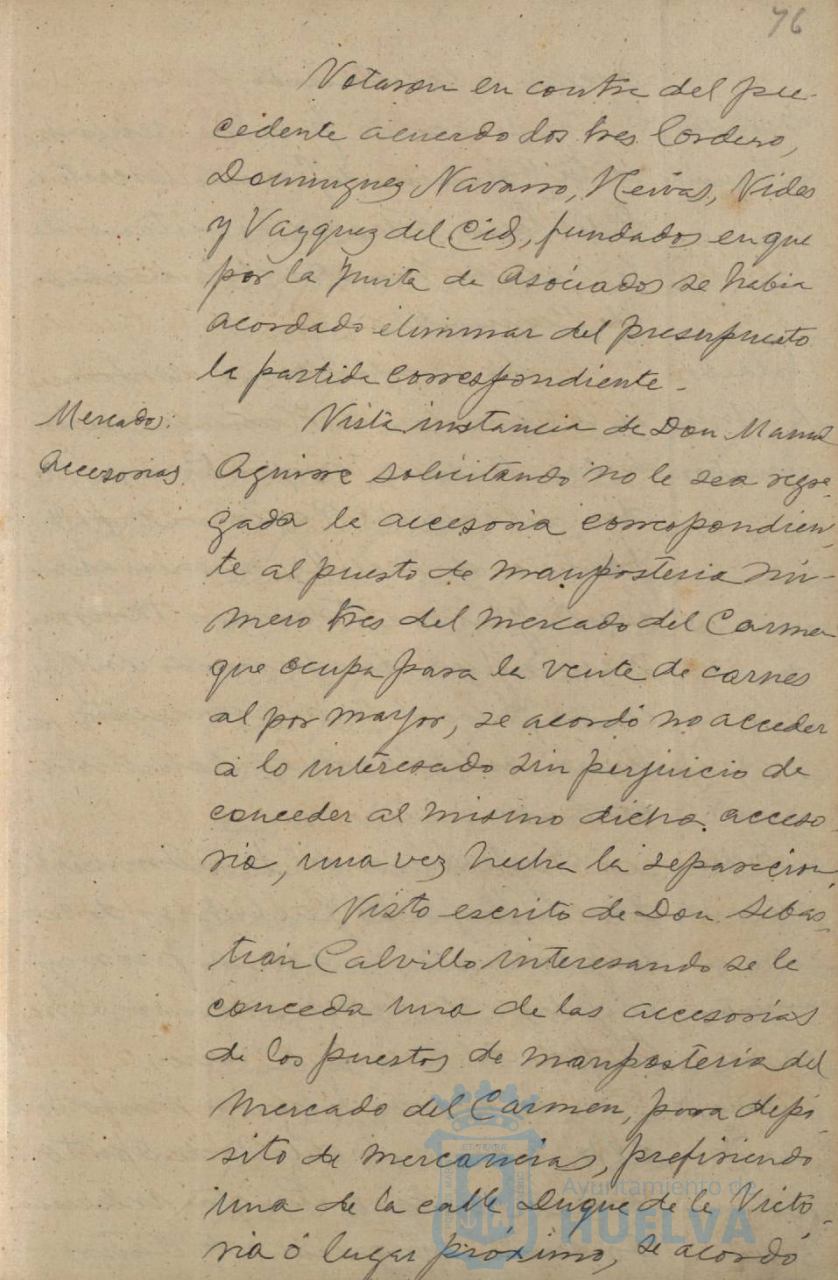 76
Votaron en contra del pre-
cedente acuerdo los Sres Cordero,
Dominguez Navarro, Vides
y Vazquez del Cid, fundados en que
por la Junta de Asociados se habia
acordado eliminar del presupuesto
la partida correspondiente.
Mercados:
Accesorias
Vista instancia de Don Manuel
Aguirre solicitando no le sea segre-
gada la accesoria correspondien-
te al puesto de mamposteria nú-
mero tres del mercado del Carmen
que ocupa para la venta de carnes
al por mayor, se acordó no acceder
a lo interesado sin perjuicio de
conceder al mismo dicha acceso-
ria, una vez hecha la separacion.
Visto escrito de Don Sebas-
tián Calvillo interesando se le
conceda una de las accesorias
de los puestos de mamposteria del
Mercado del Carmen, para depó-
sito de mercancias, prefiriendo
una de la calle Duque de la Victo-
ria ó lugar próximo, se acordó
Ayuntamiento de
HUELVA